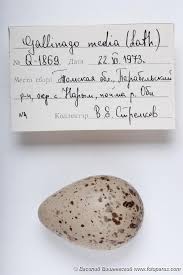 Gallinago media (Lath.)
№ Q-1869 Дата 22.VI.1973.
Место сбора Томская обл., Парабельский
р-н, окр. с. Нарым, пойма р. Оби
В.Б. Стрелков
© Евгений Вишневский www.fotoparus.com